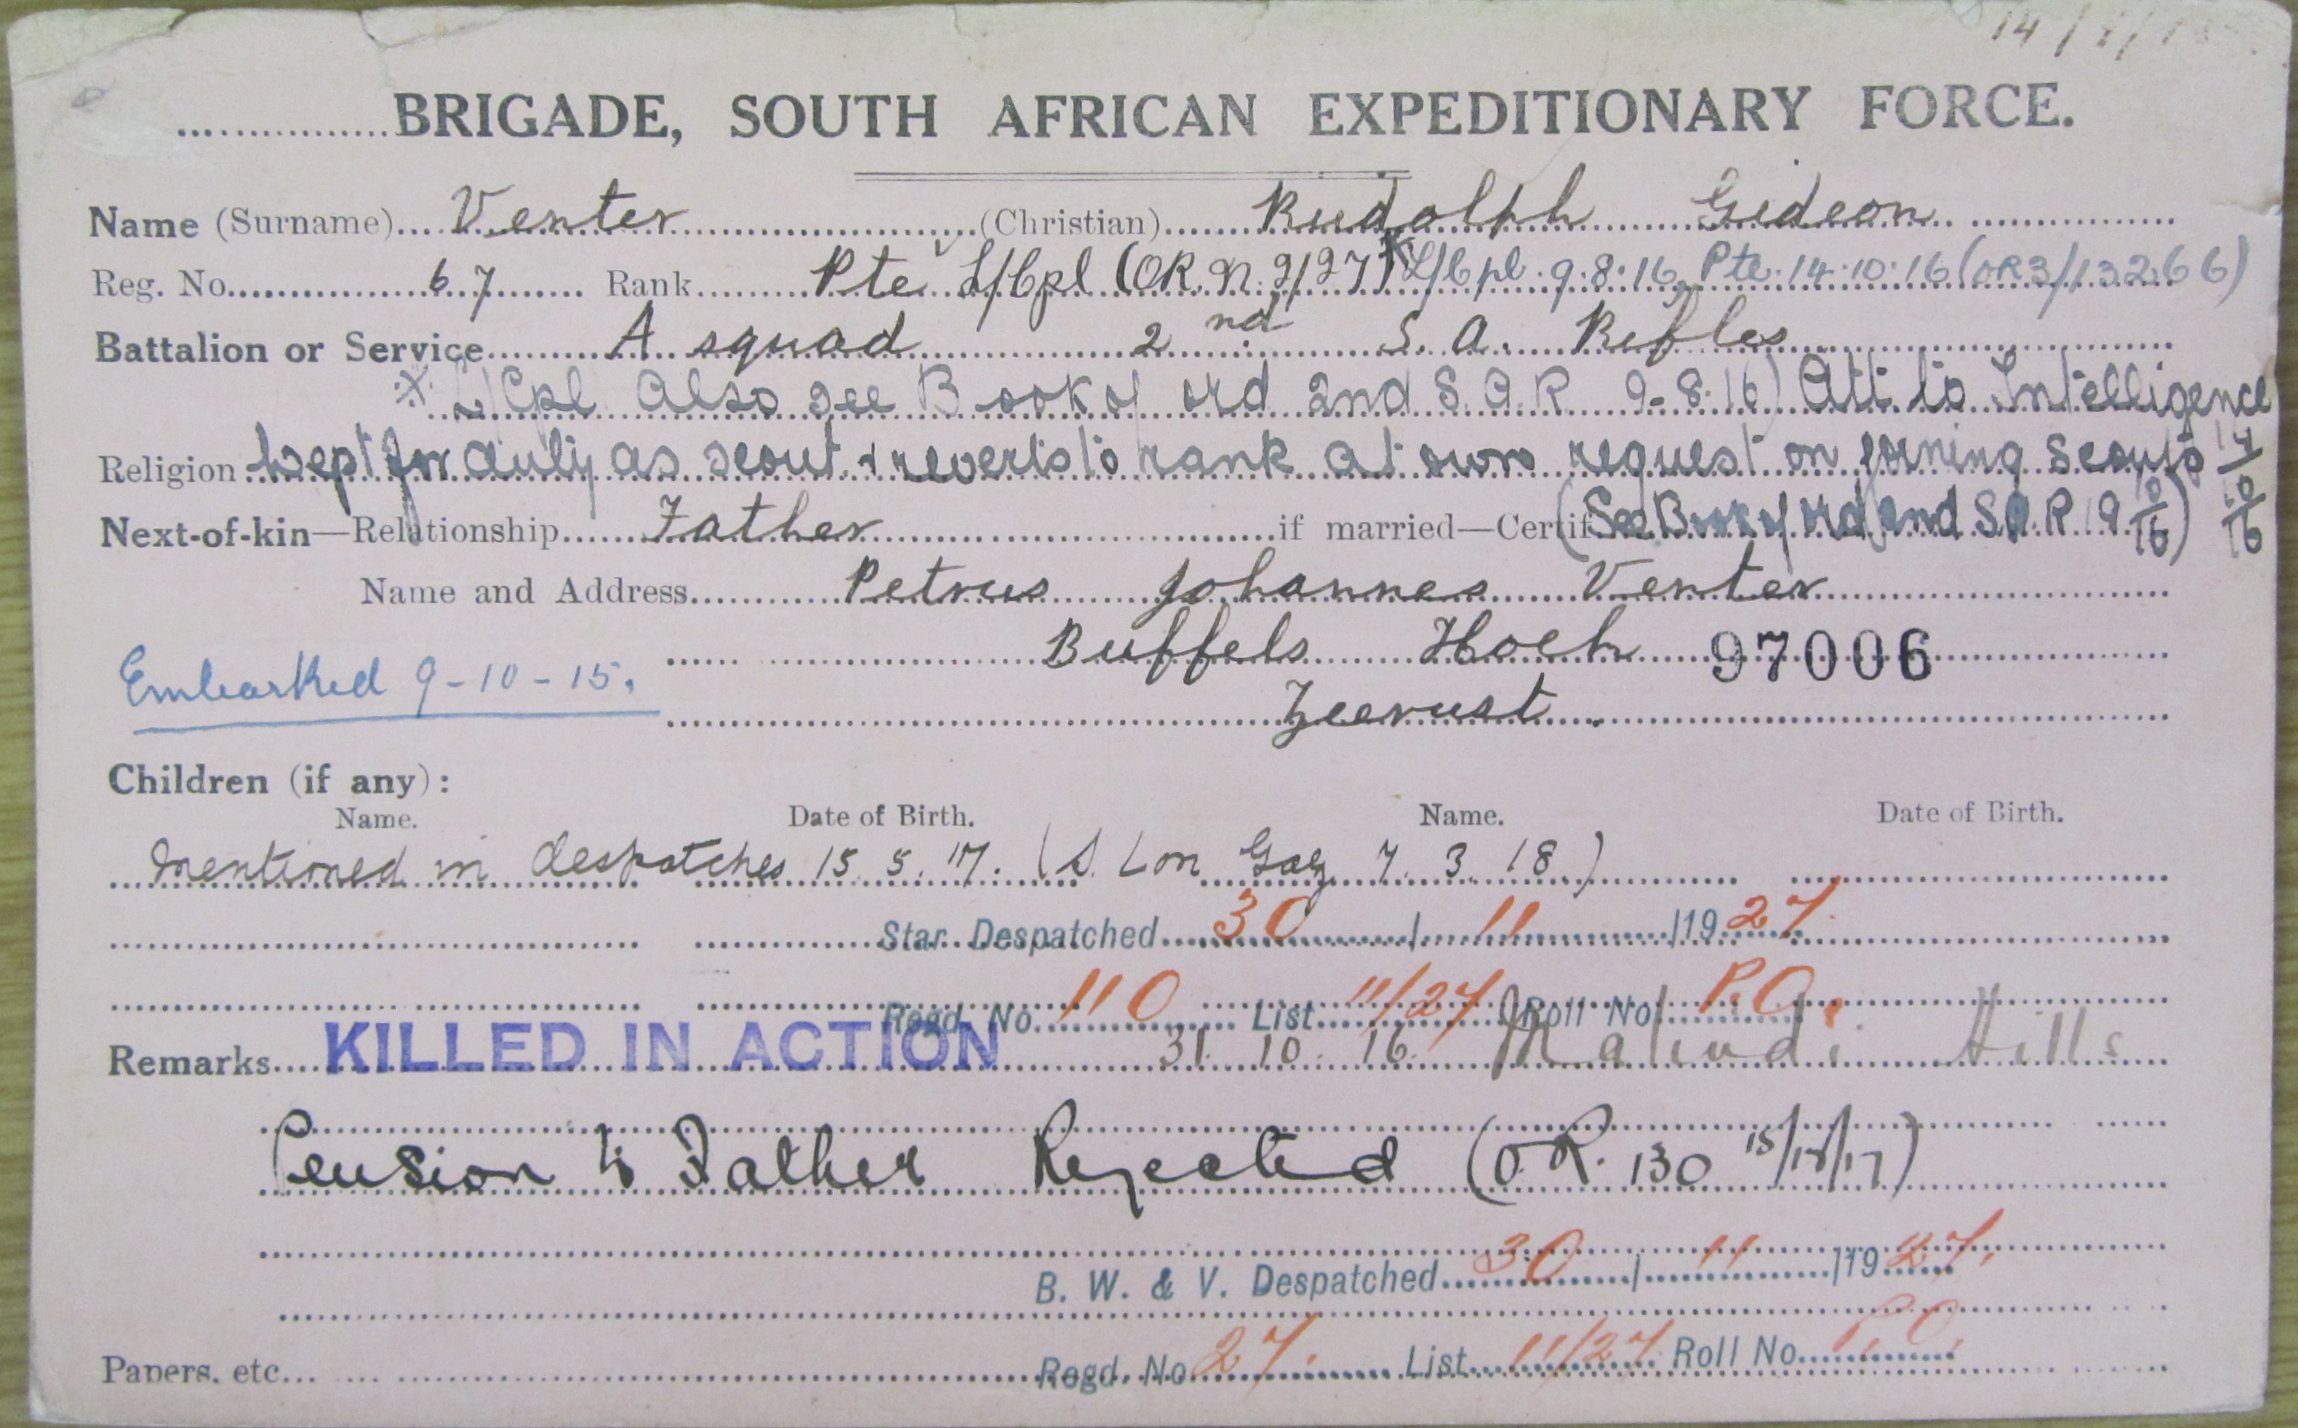 BRIGADE, SOUTH AFRICAN EXPEDITIONARY FORCE.
Name (Surname) Venter (Christian) Rudolph Gideon
Reg. No. 67 Rank Pte L/Cpl (OR. N. 2/27) L/Cpl. 9.8.16, Pte. 14.10.16 (OR3/13266)
Battalion or Service A squad 2nd S. A. Rifles
L/Cpl Also see Book of Ord 2nd S.A.R 9-8-16) Att to Intelligence
Religion Dept for duty as scout & reverts to rank at own request on joining Scouts 14/10/16
Next-of-kin—Relationship Father if married—Certif (See Book of Ord 2nd S.A.R 19 10/16)
Name and Address Petrus Johannes Venter
Buffels Hoek 97006
Embarked 9-10-15.
Zeerust.
Children (if any):
Name. Date of Birth. Name. Date of Birth.
Mentioned in despatches 15.5.17. (S. Lon Gaz 7.3.18)
Star Despatched 30/11/1927.
Regd. No. 110 List 11/27 Roll No. P.O.
Remarks KILLED IN ACTION 31.10.16. Hills
Pension to Father Rejected (O.R. 130
B. W. & V. Despatched 30/11/1927.
Papers, etc. Regd. No 27. List 11/27 Roll No. P.O.